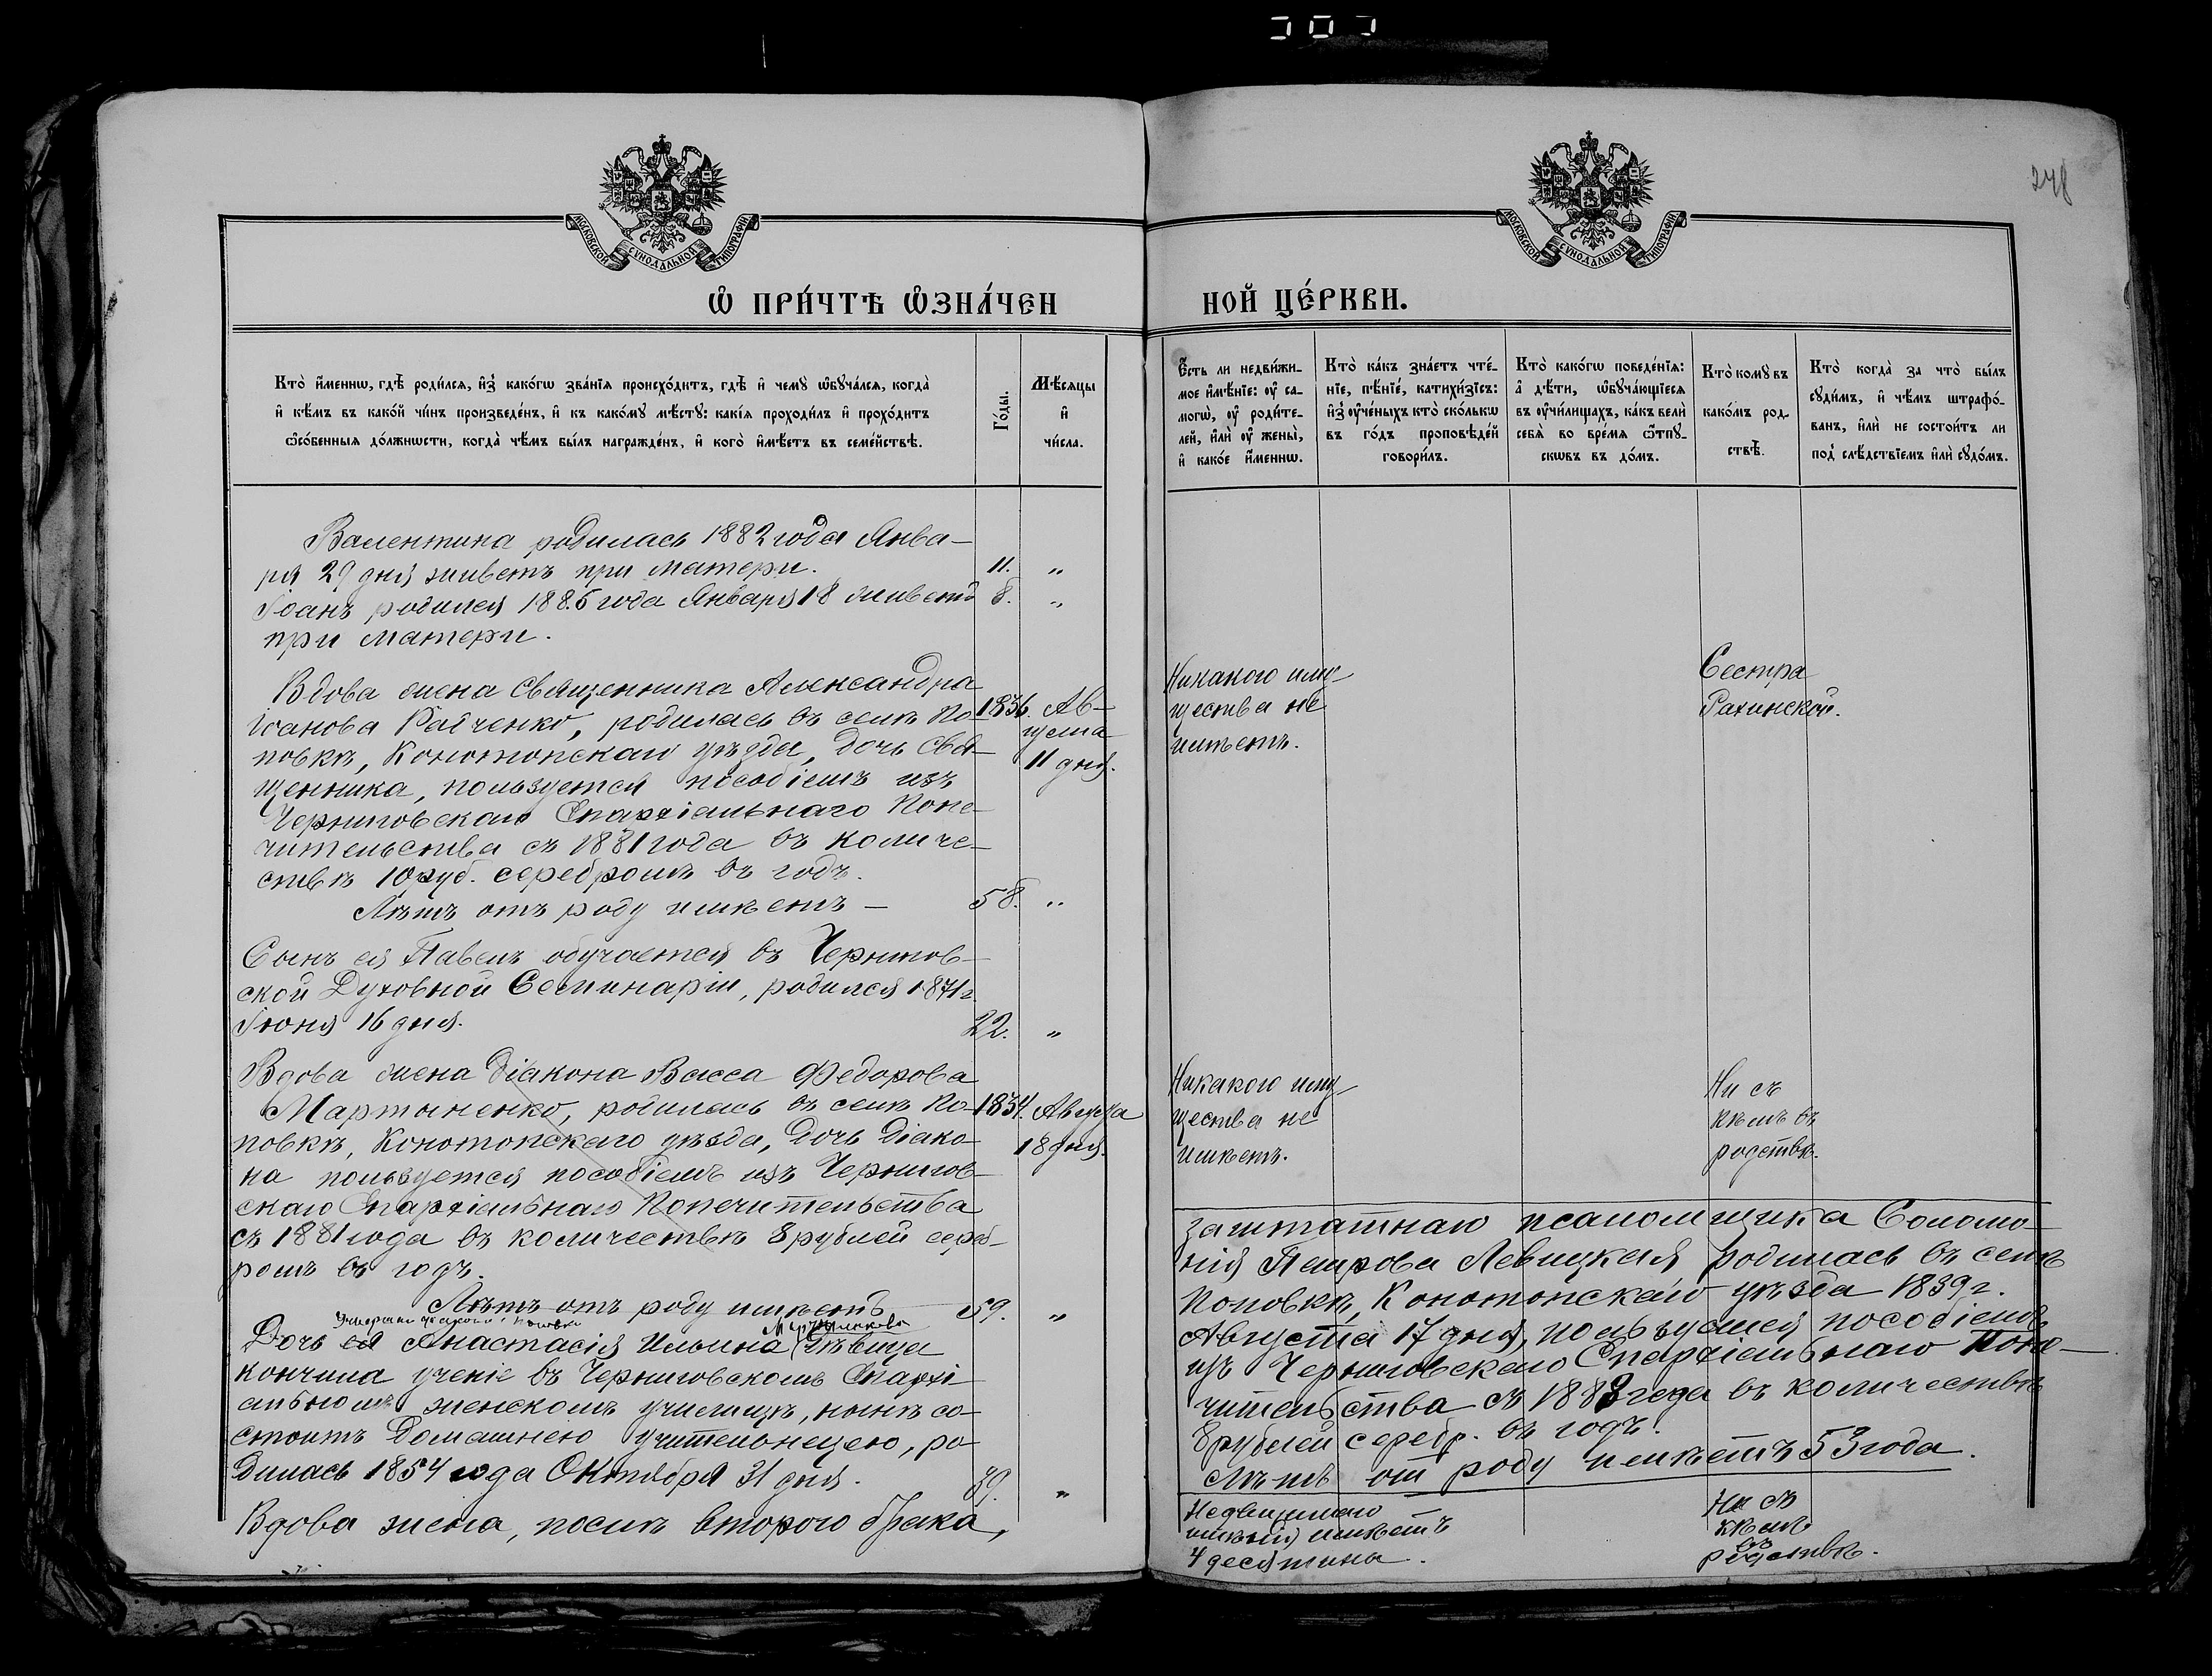 248
МОСКОВСКОЙ СѴНОДАЛЬНОЙ ТИПОГРАФІИ
МОСКОВСКОЙ СѴНОДАЛЬНОЙ ТИПОГРАФІИ
Ѡ ПРИ́ЧТѢ ѠЗНА́ЧЕН
НОЙ ЦЕ́РКВИ.
Кто̀ и҆́меннѡ, гдѣ̀ роди́лся, и҆з̾ како́гѡ зва́нїя происхо́дитъ, гдѣ̀ и҆ чемꙋ̀ ѡ҆бꙋча́лся, когда̀
и҆ кѣ́мъ въ како́й чи́нъ произведе́нъ, и҆ къ како́мꙋ мѣ́стꙋ: какі́я проходи́лъ и҆ прохо́дитъ
ѻ҆со́бенныя до́лжнѡсти, когда̀ чѣ́мъ бы́лъ награжде́нъ, и҆ кого̀ и҆мѣ́етъ въ семе́йствѣ.
Го́ды.
Мѣ́сяцы
и҆
чи́сла.
Е҆́сть ли недви́жи-
мое и҆мѣ́нїе: оу҆ са-
могѡ̀, оу҆ роди́те-
лей, и҆лѝ оу҆ жены̀,
и҆ како́е и҆́меннѡ.
Кто̀ ка́къ зна́етъ чте́-
нїе, пѣ́нїе, катихи́зїсъ:
и҆з̾ оу҆че́ныхъ кто̀ ско́лькѡ
въ го́дъ проповѣ́дей
говори́лъ.
Кто̀ како́гѡ поведе́нїя:
а҆ дѣ́ти, ѡ҆бꙋча́ющїеся
въ оу҆чи́лищахъ, ка́къ велѝ
себѧ̀ во вре́мя ѿпꙋ-
скѡвъ въ до́мъ.
Кто̀ комꙋ̀ въ
како́мъ род-
ствѣ̀.
Кто̀ когда̀ за что̀ бы́лъ
сꙋди́мъ, и҆ чѣ́мъ штрафо́-
ванъ, и҆лѝ не состои́тъ ли
под̾ слѣ́дствїемъ и҆лѝ сꙋдо́мъ.
Валентина родилась 1882 года Янва-
ря 29 дня живетъ при матери. 11. „
Іоанъ родился 1885 года Января 18 живетъ 8. „
при матери.
Вдова жена Священника Александра
Іоанова Райченко, родилась въ селѣ По- 1836. Ав-
повкѣ, Конотопскаго уѣзда, дочь Свя- густа
щенника, пользуется пособіемъ изъ 11 дня.
Черниговскаго Епархіальнаго Попе-
чительства съ 1881 года въ количе-
ствѣ 10 руб. серебромъ въ годъ.
Лѣтъ отъ роду имѣетъ — 58. „
Никакого иму-
щества не
имѣетъ.
Сестра
Рахинской.
Сынъ ея Павелъ обучается въ Чернигов-
ской Духовной Семинаріи, родился 1871 г.
Іюня 16 дня. 22. „
Вдова жена діакона Васса Федорова
Мартыненко, родилась въ селѣ По- 1834. Августа
повкѣ, Конотопскаго уѣзда, дочь діако- 18 дня.
на пользуется пособіемъ изъ Чернигов-
скаго Епархіальнаго Попечительства
съ 1881 года въ количествѣ 8 рублей сереб-
ромъ въ годъ.
Лѣтъ отъ роду имѣетъ 59. „
Никакого иму-
щества не
имѣетъ.
Ни съ
кѣмъ въ
родствѣ.
Дочь ея Анастасія Ильина дѣвица
кончила ученіе въ Черниговскомъ Епархі-
альномъ женскомъ училищѣ, нынѣ со-
стоитъ Домашнею учительницею, ро-
дилась 1854 года Октября 31 дня. 39. „
Вдова жена, послѣ второго брака,
заштатнаго псаломщика Соломо-
нія Петрова Левицкая, родилась въ селѣ
Поповкѣ, Конотопскаго уѣзда 1839 г.
Августа 17 дня, пользуется пособіемъ
изъ Черниговскаго Епархіальнаго Попе-
чительства съ 1888 года въ количествѣ
8 рублей серебр. въ годъ.
Лѣтъ отъ роду имѣетъ 53 года.
Недвижимаго
имѣнія имѣетъ
4 десятины.
Ни съ
кѣмъ
въ
родствѣ.